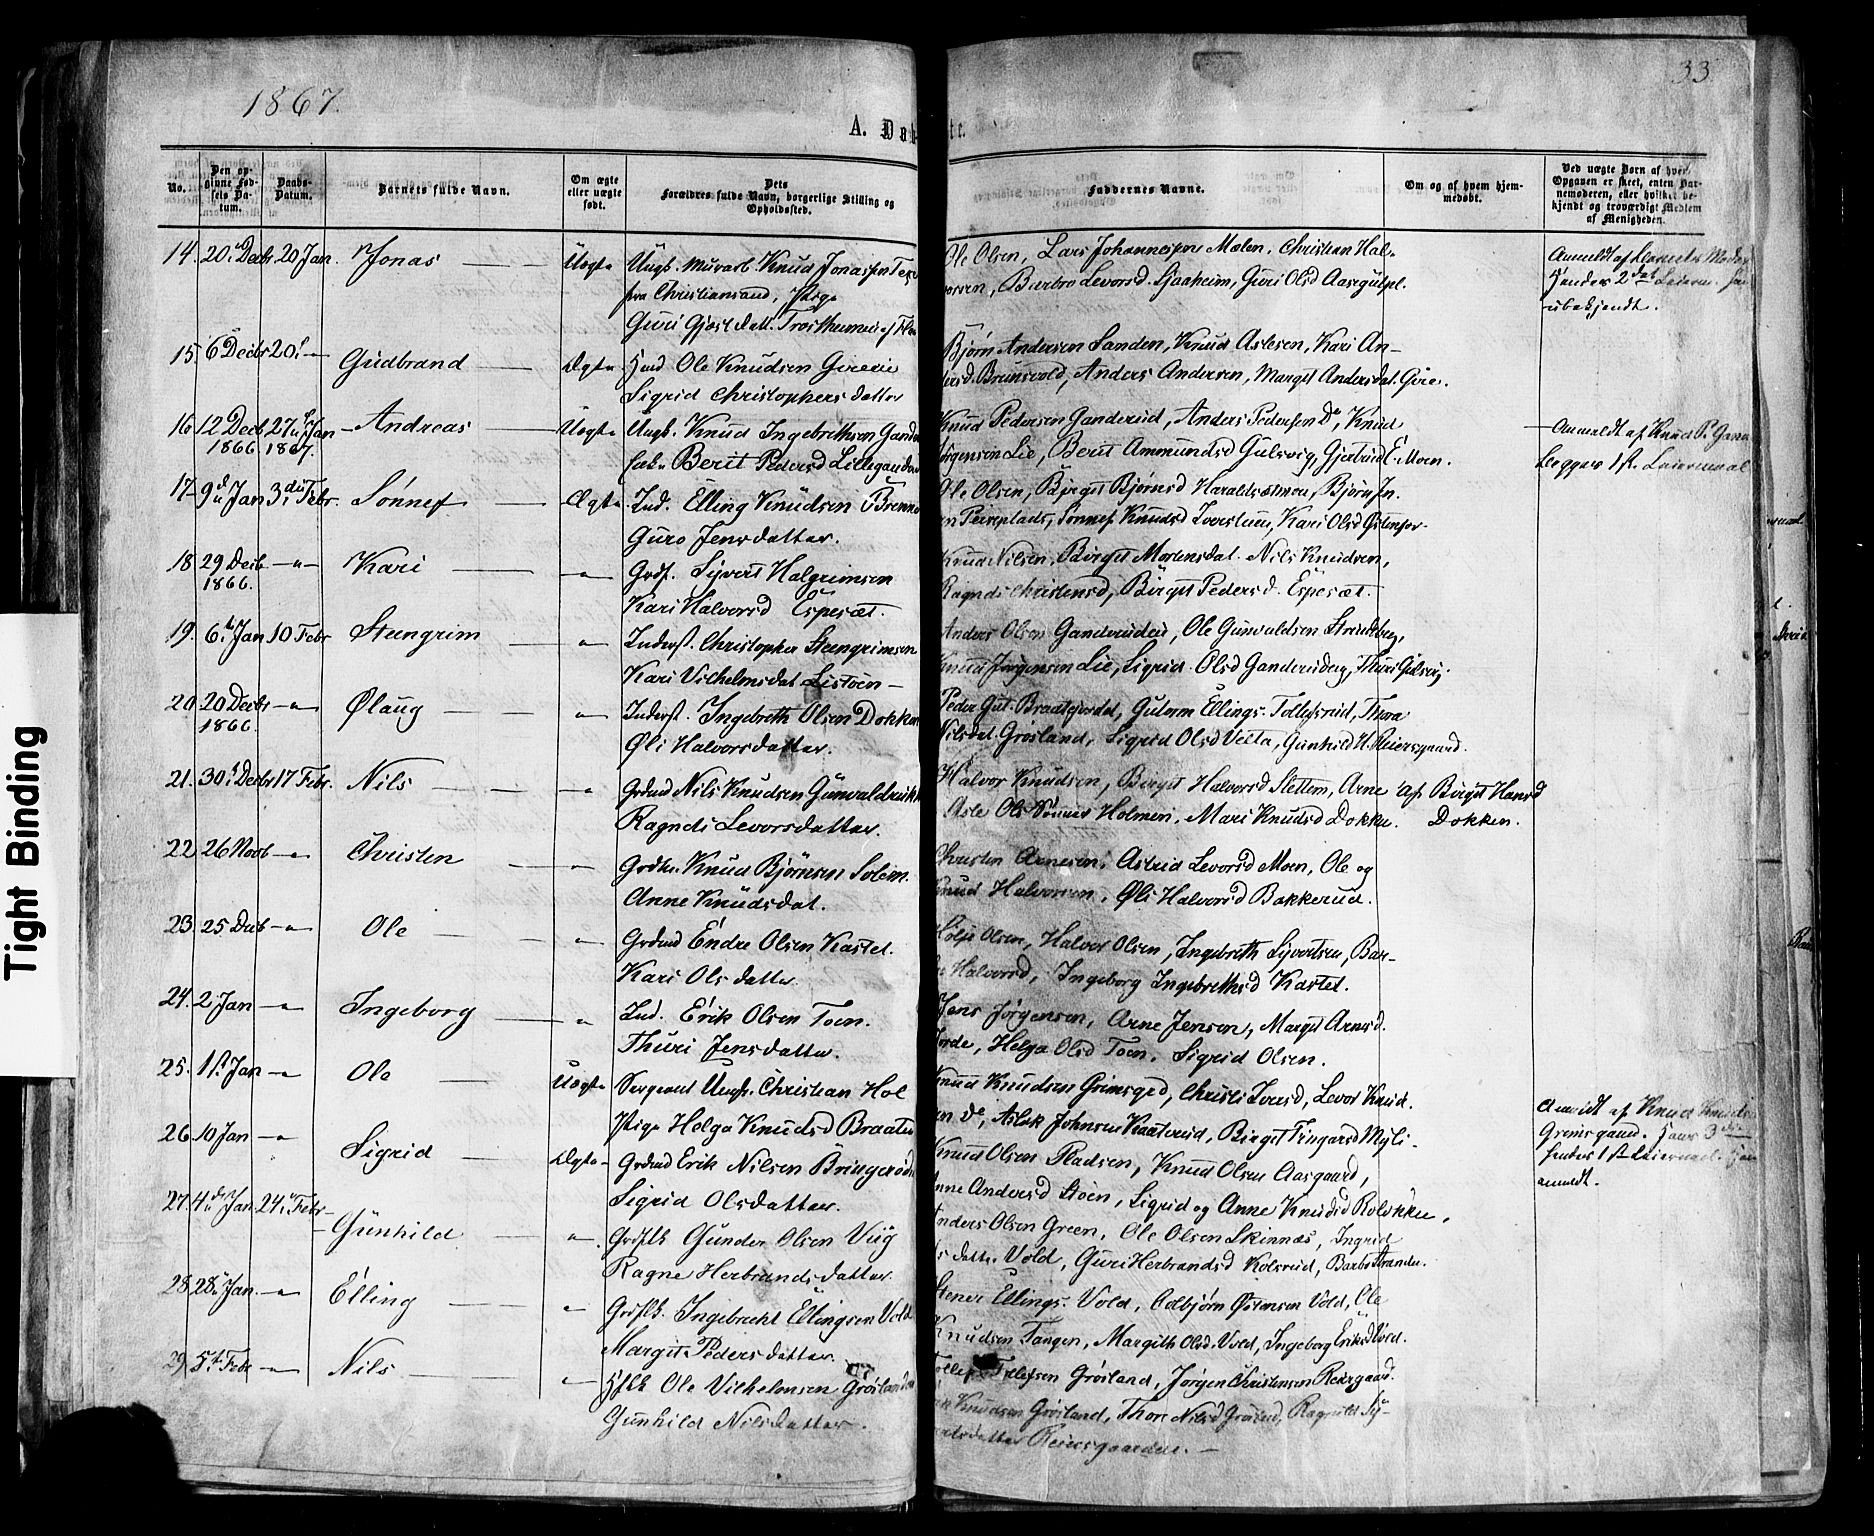 1867.
33
A. Døb
te.
No.
Den op-
givne Fød-
sels Da-
tum.
Daabs-
Datum.
Barnets fulde Navn.
Om ægte
eller uægte
født.
Dets
Forældres fulde Navn, borgerlige Stilling og
Opholdssted.
Faddernes Navne.
Om og af hvem hjem-
medøbt.
Ved uægte Børn af hvem
Opgaven er skeet, enten Bar-
nemoderen, eller hvilket be-
kjendt og troværdigt Medlem
af Menigheden.
14. 20 Decbr 20 Jan. Jonas — Uægte Ungk. Murarb Knud Jonassen
fra Christiansand, Pige
Guri Gjæst datt.
Ole Olsen, Lars Johannessen Mælen, Christian Hal-
vorsen, Barbro Levorsd. Sjaaheim, Guri Olsd
Anmeldt af Barnets Moder
Hendes 2det Leierm.
ubekjendt.
15. 6 Decbr 20 — Gudbrand — Ægte Hmd Ole Knudsen
Sigrid Christophersdatter
Bjørn Andersen Sanden, Knud Aslesen, Kari An-
dersd. Brunsvold, Anders Andersen, Margit Andersdat.
16 12 Decb 27 Jan — Andreas — Uægte Ungk. Knud Ingebrethsen
1866. 1867.
Berit Pedersd
Knud Pedersen Ganderud, Anders Pedersen Do, Knud
Jørgensen Lie, Berit Ammundsd Gulsvig, Gjertrud E. Moen.
Anmeldt af Knud P.
Begges 1ste Leiermaal
17 9 Jan 3die Febr. Sønnef — Ægte Ind. Elling Knudsen
Guro Jensdatter.
Ole Olsen, Birgit Bjørnsd Haraldsætmoen, Bjørn
Pereplads, Sønnef Knudsd, Kari Olsd
18 29 Decb — " — Kari — " — Grdf. Syvert Halgrimsen
1866.
Kari Halvorsd Espesæt.
Knud Nilsen, Birgit Mortensdat. Nils Knudsen,
Ragndi Christensd, Birgit Pedersd. Espesæt.
19. 6 Jan 10 Febr Steengrim — " — Inderst. Christopher Steengrimsen
Kari Vilhelmsdat
Anders Olsen, Ole Gunvaldsen
Knud Jørgensen Lie, Sigrid Olsd, Thuri Gulsvig.
20 20 Decbr — " Ølaug — " — Inderst. Ingebreth Olsen Dokken
1866
Øli Halvorsdatter.
Peder Gut. Braatejordet, Gutorm Ellings. Tollefsrud, Thora
Nilsdat. Grøsland, Sigrid Olsd Vella, Gunhild H. Reiersgaard.
21. 30 Decbr 17 Febr. Nils — " — Grdmd Nils Knudsen
Ragndi Levorsdatter.
Halvor Knudsen, Birgit Halvorsd Slettem, Arne
Asle Ols Sønner Holmen, Mari Knudsd Dokken.
af Birgit Hansd
Dokken.
22. 26 Novb — " Christen — " Knud Bjørnsen Solem.
Anne Knudsdat.
Christen Arnesen, Astrid Levorsd Moen, Ole og
Knud Halvorsen, Øli Halvorsd Bakkerud.
23. 25. Decb — " Ole — " — Grdmd Endre Olsen Kastet.
Kari Olsdatter
Olsen, Halvor Olsen, Ingebreth Syvertsen, Bar-
Halvorsd, Ingeborg Ingebrethsd Kastet.
24. 2 Jan — " Ingeborg — " Ind. Erik Olsen Toen.
Thuri Jensdatter.
Jens Jørgensen, Arne Jensen, Margit Arnesd.
Helga Olsd Toen. Sigrid Olsen.
25. 1st Jan — " Ole — Uægte Sergeant Ungk. Christian Hol
Pige Helga Knudsd Braaten
Knud Knudsen, Christi Iversd, Levor Knud-
sen do, Aslak Johnsen, Birget
Anmeldt af Knud Knuds
Grimsgaard. Hans 3die
hendes 1ste Leiermaal.
anmeldt.
26. 10 Jan — " Sigrid — Ægte — Grdmd Erik Nilsen
Sigrid Olsdatter.
Knud Olsen Pladsen, Knud Olsen Aasgaard,
Anne Andersd Støen, Sigrid og Anne Knudsd
27. 4de Jan 24 Febr — Gunhild — " . Grdflk Gunder Olsen Viig
Ragne Herbrandsdatter.
Anders Olsen Green, Ole Olsen Skinnæs, Ingrid
datter Vold, Guri Herbrandsd Kolsrud,
28 28 Jan. — " Elling — " Grdflk. Ingebrecht Ellingsen Vold
Margit Pedersdatter.
Stener Ellings. Vold, Odbjørn Østensen Vold, Ole
Knudsen Tangen, Margith Olsd. Vold, Ingeborg Eriksd Vold.
29. 5te Febr — " Nils — " Ole Vilhelmsen Grøsland
Gunhild Nilsdatter.
Tollef Tollefsen Grøsland, Jørgen Christensen
Knudsen Grøsland, Thora Nilsd, Ragnild Sy-
vertsdatter Reiersgaarden. —
Tight Binding